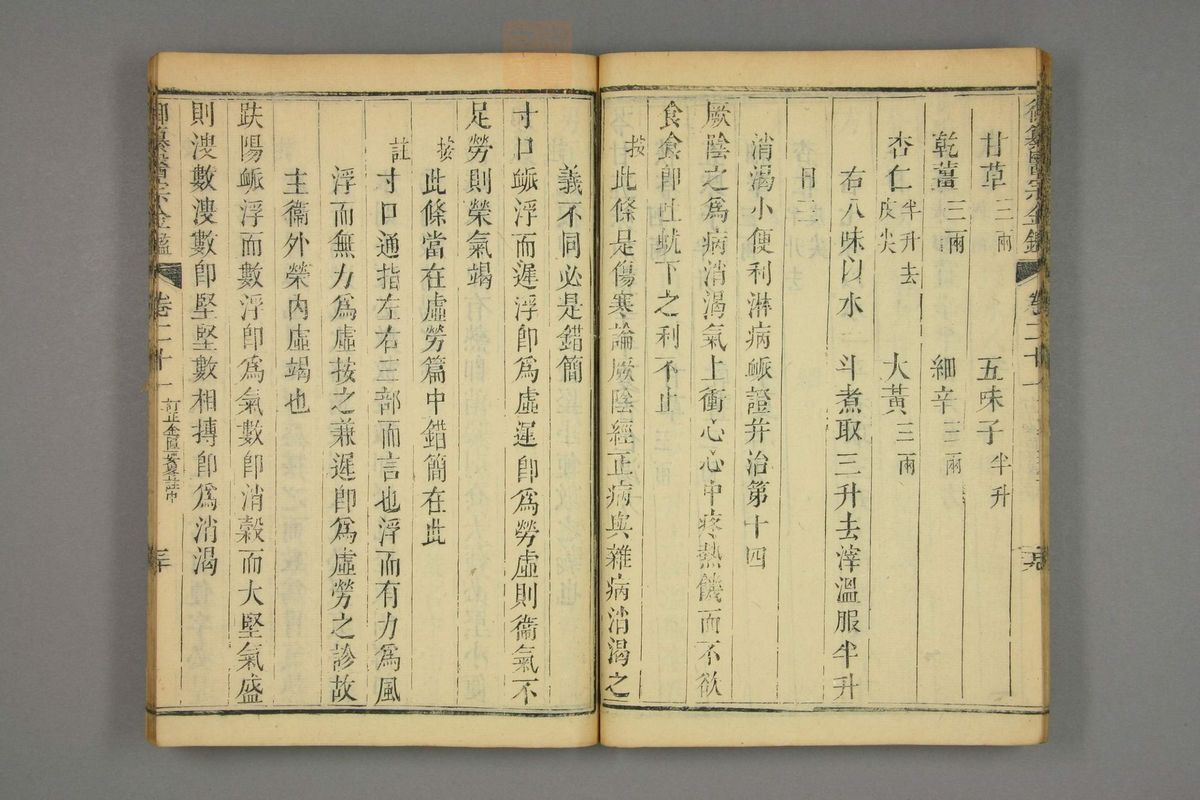 甘草三兩　五味子半升
乾薑三兩　細辛三兩
杏仁半升去皮尖　大黃三兩
右八味以水一斗煮取三升去滓溫服半升
日三
消渴小便利淋病脈證并治第十四
厥陰之爲病消渴氣上衝心心中疼熱饑而不欲
食食卽吐蚘下之利不止
按此條是傷寒論厥陰經正病與雜病消渴之
義不同必是錯簡
寸口脈浮而遲浮卽爲虛遲卽爲勞虛則衞氣不
足勞則榮氣竭
按此條當在虛勞篇中錯簡在此
註寸口通指左右三部而言也浮而有力爲風
浮而無力爲虛按之兼遲卽爲虛勞之診故
主衞外榮內虛竭也
趺陽脈浮而數浮卽爲氣數卽消穀而大堅氣盛
則溲數溲數卽堅堅數相搏卽爲消渴
御纂醫宗金鑑　卷二十一　訂正金匱要畧註中　三十